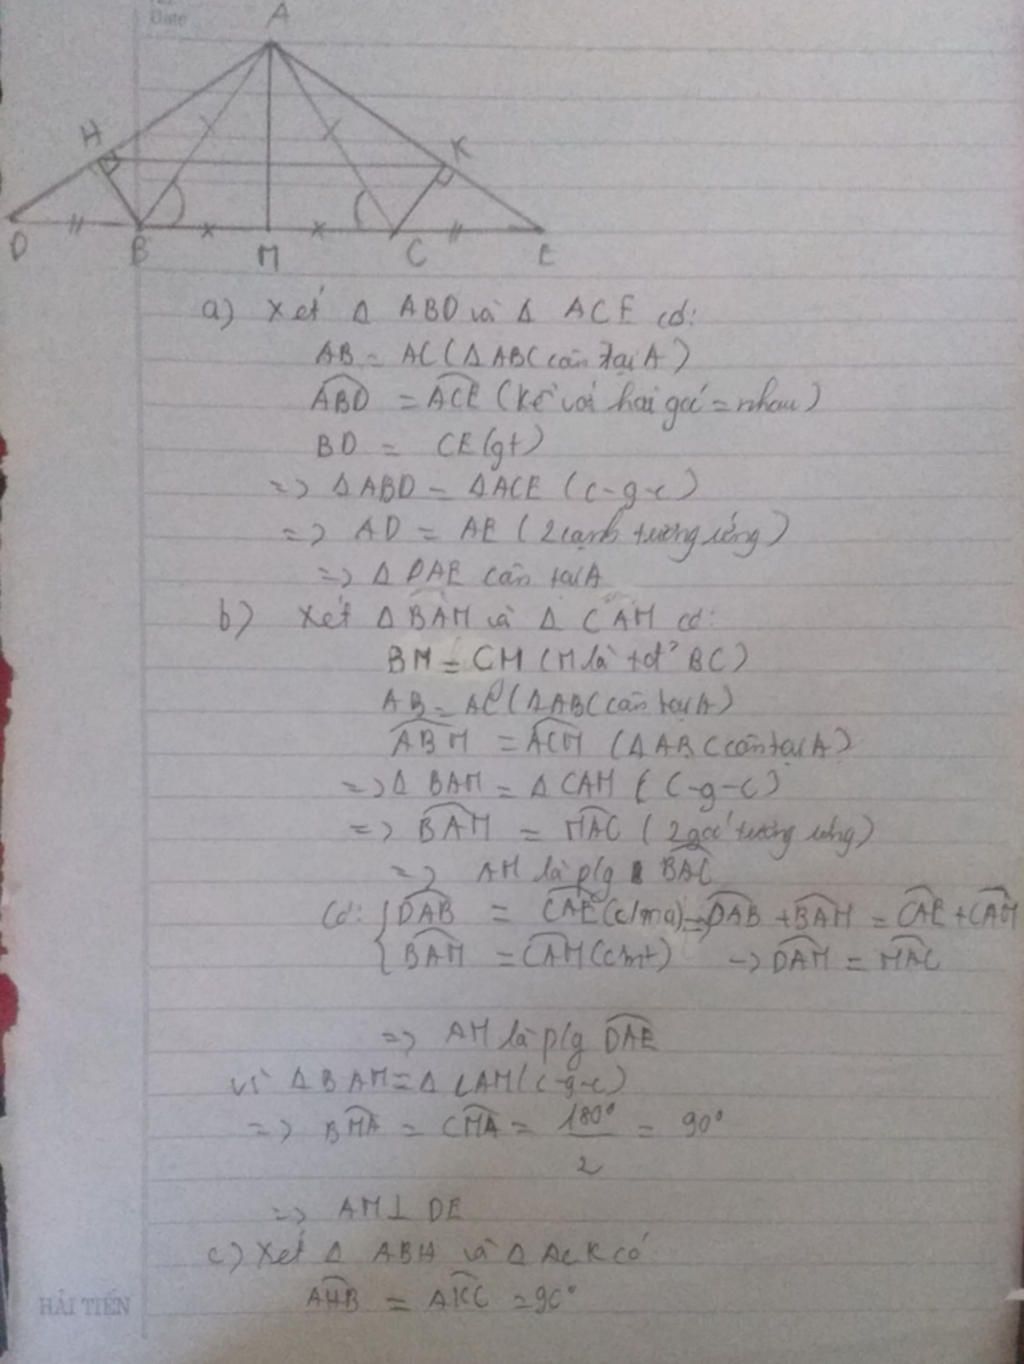 Date
A
H
K
D
B
M
C
E
a) Xét Δ ABD và Δ ACE có:
AB = AC (Δ ABC cân tại A)
ABD = ACE (kề với hai góc = nhau)
BD = CE (gt)
=> Δ ABD = Δ ACE (c-g-c)
=> AD = AE (2 cạnh tương ứng)
=> Δ DAE cân tại A
b) Xét Δ BAM và Δ CAM có:
BM = CM (M là tđ² BC)
AB = AC (Δ ABC cân tại A)
ABM = ACM (Δ ABC cân tại A)
=> Δ BAM = Δ CAM (c-g-c)
=> BAM = MAC (2 góc tương ứng)
=> AM là p/g BAC
Có: { DAB = CAE (c/m a) => DAB + BAM = CAE + CAM
BAM = CAM (cmt) -> DAM = MAC
=> AM là p/g DAE
Vì Δ BAM = Δ CAM (c-g-c)
=> BMA = CMA = 180°/2 = 90°
=> AM ⊥ DE
c) Xét Δ ABH và Δ ACK có
AHB = AKC = 90°
HẢI TIẾN